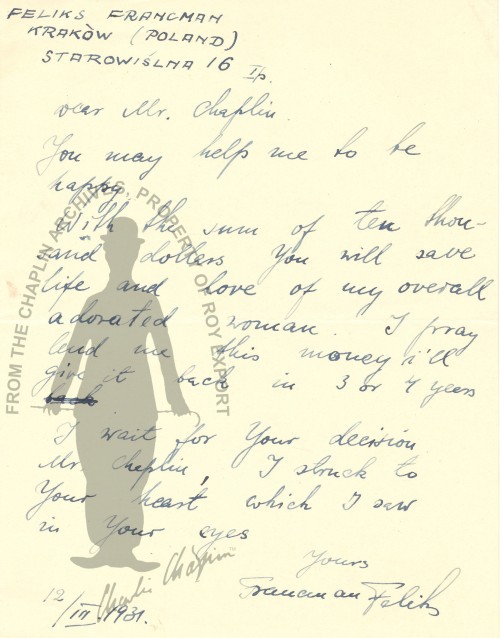 FELIKS FRANCMAN
KRAKÒW (POLAND)
STAROWIŚLNA 16 II/p.
Dear Mr. Chaplin.
You may help me to be
happy.
With the sum of ten thou-
sand dollars You will save
life and love of my overall
adorated woman. I pray
lend me this money i'll
give it back in 3 or 4 years
back
I wait for Your decision
Mr. Chaplin, I struck to
Your heart which I saw
in Your eyes
Yours
Francman Feliks
12/III.1931.
FROM THE CHAPLIN ARCHIVES, PROPERTY OF ROY EXPORT
Charlie Chaplin